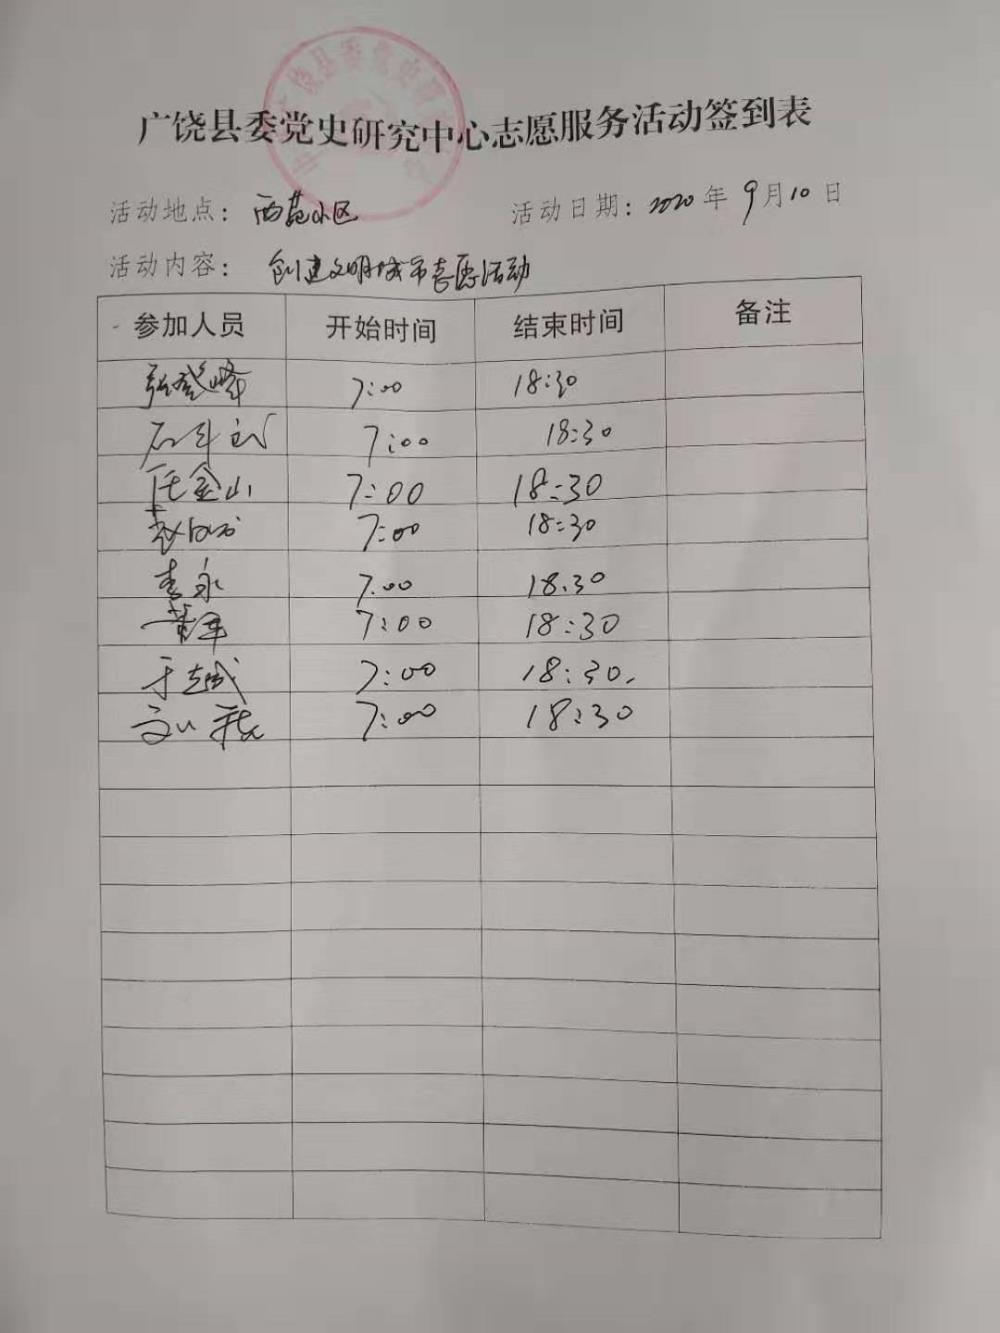 广饶县委党史研究中心志愿服务活动签到表
活动地点：西苑小区 活动日期：2020年9月10日
活动内容：创建文明城市志愿活动
参加人员 开始时间 结束时间 备注
张登峰 7:00 18:30
7:00 18:30
任金山 7:00 18:30
7:00 18:30
李永 7.00 18.30
7:00 18:30
于越成 7:00 18:30.
7:00 18:30